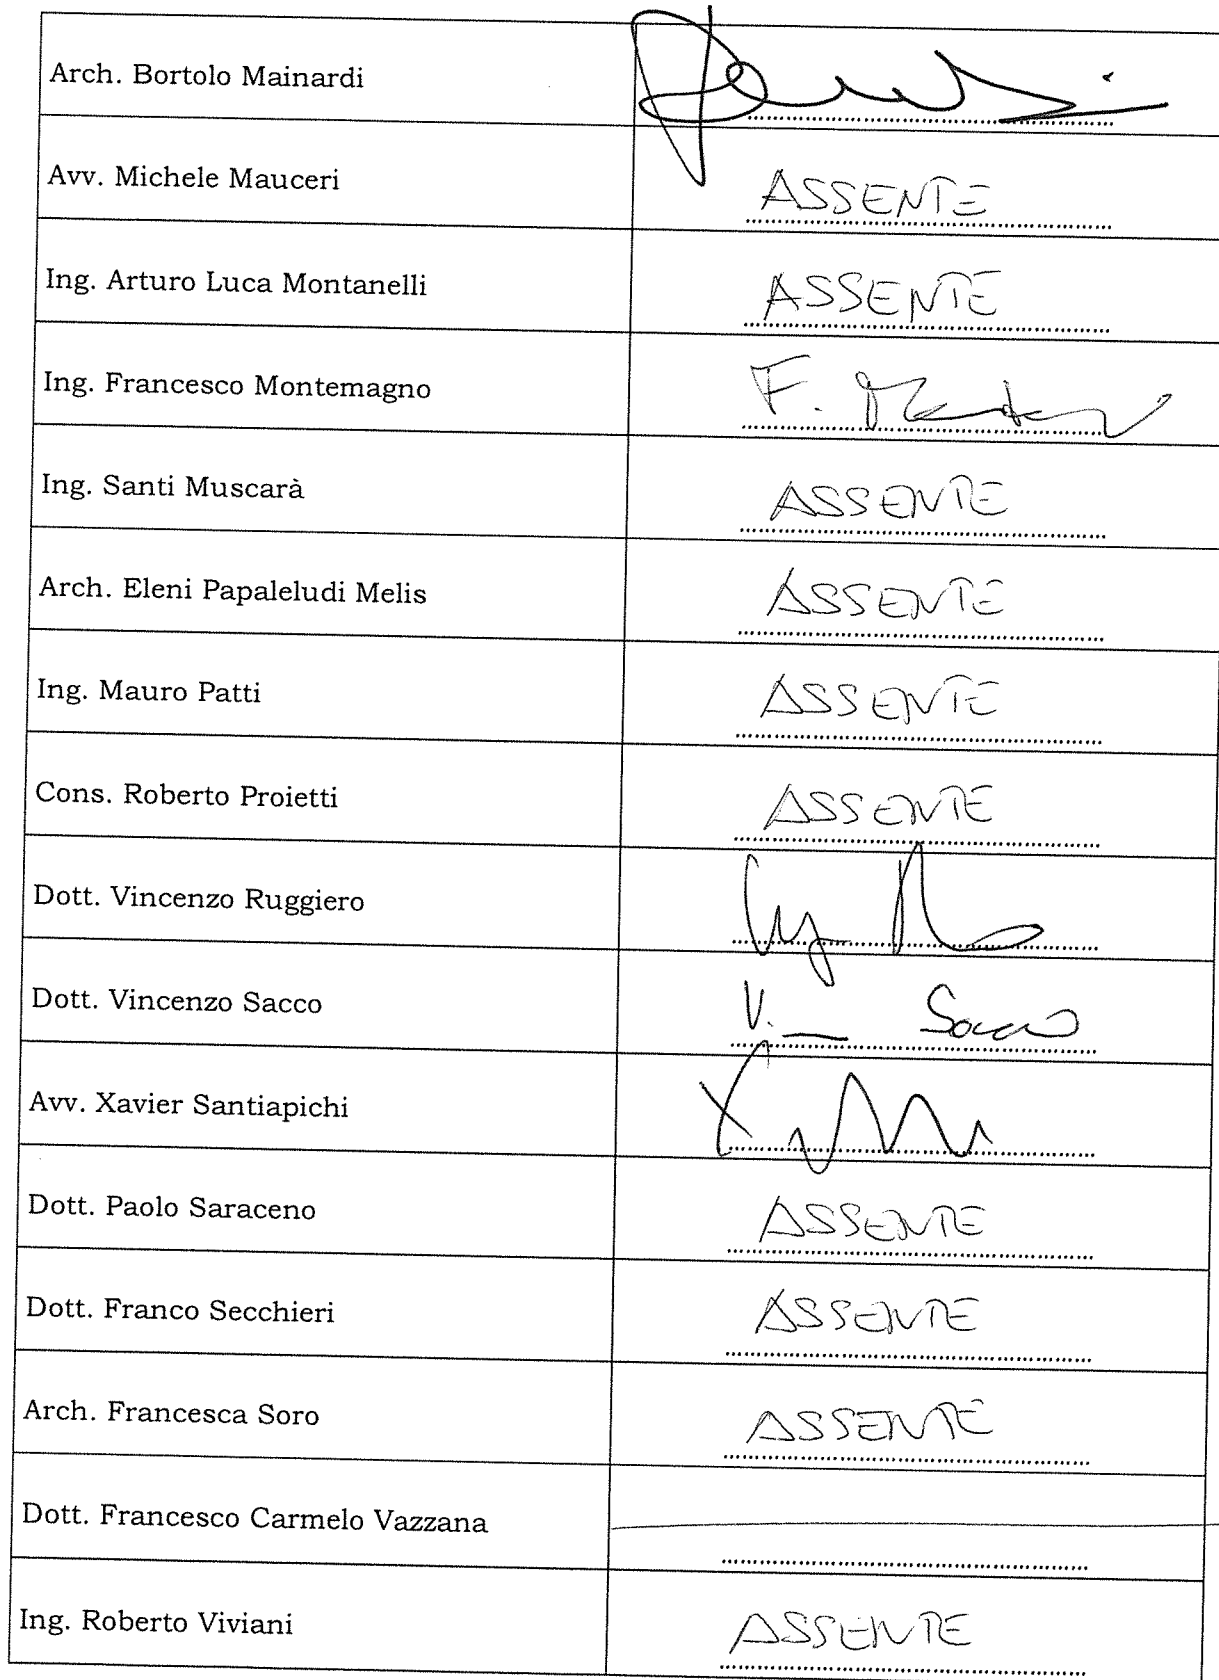 Arch. Bortolo Mainardi
Avv. Michele Mauceri ASSENTE
Ing. Arturo Luca Montanelli ASSENTE
Ing. Francesco Montemagno F.
Ing. Santi Muscarà ASSENTE
Arch. Eleni Papaleludi Melis ASSENTE
Ing. Mauro Patti ASSENTE
Cons. Roberto Proietti ASSENTE
Dott. Vincenzo Ruggiero
Dott. Vincenzo Sacco V. Sacco
Avv. Xavier Santiapichi
Dott. Paolo Saraceno ASSENTE
Dott. Franco Secchieri ASSENTE
Arch. Francesca Soro ASSENTE
Dott. Francesco Carmelo Vazzana
Ing. Roberto Viviani ASSENTE